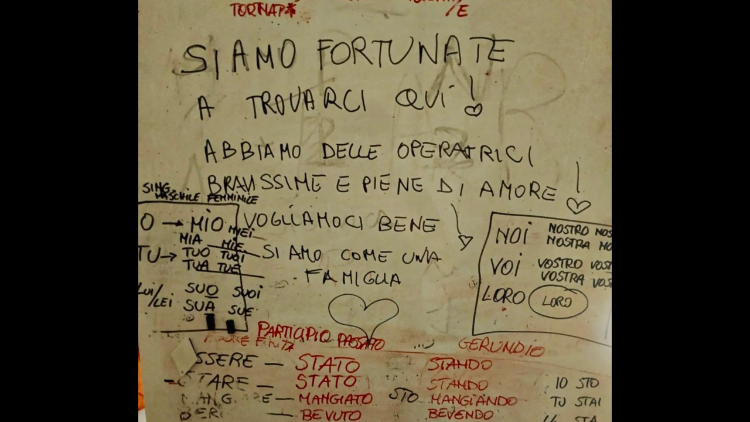 TORNAT*
/E
SIAMO FORTUNATE
A TROVARCI QUI!
ABBIAMO DELLE OPERATRICI
BRAVISSIME E PIENE DI AMORE!
VOGLIAMOCI BENE
SIAMO COME UNA
FAMIGLIA
SING.
MASCHILE FEMMINILE
O → MIO MIEI
MIA MIE
TU → TUO TUOI
TUA TUE
LUI/LEI SUO SUOI
SUA SUE
NOI NOSTRO NOS
NOSTRA NO
VOI VOSTRO VOST
VOSTRA VOS
LORO LORO
PARTICIPIO PASSATO GERUNDIO
SSERE — STATO STANDO
TARE — STATO STANDO IO STO
MANG RE — MANGIATO STO MANGIANDO TU STAI
BER — BEVUTO BEVENDO STA